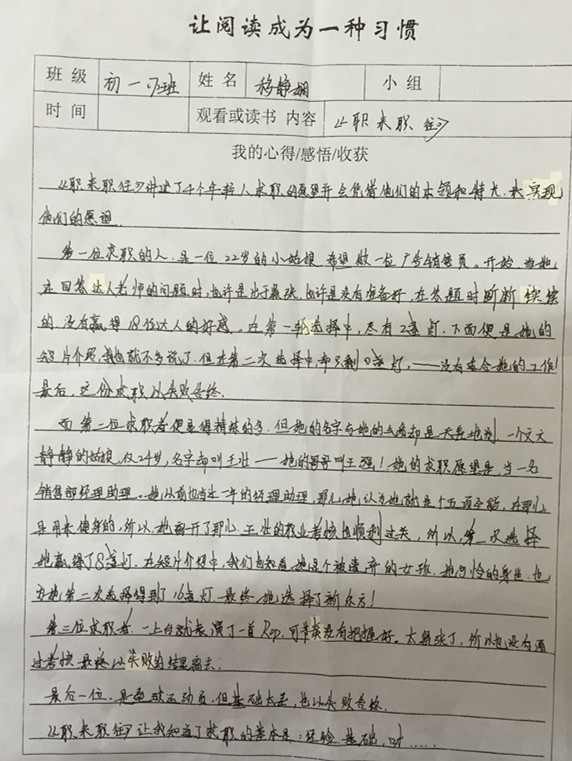 让阅读成为一种习惯
班级 初一·17班 姓名 穆静娴 小组
时间 观看或读书 内容 《职来职往》
我的心得/感悟/收获
《职来职往》讲述了4个年轻人求职的愿望并去凭借他们的本领和特长,来实现
他们的愿望.
第一位求职的人,是一位22岁的小姑娘,希望做一位广告销售员。开始,当她
在回答达人老师的问题时,也许是出于紧张,也许是没有准备好,在答题时断断续续
的,没有赢得18位达人的好感。在第一轮选择中,尽有2盏灯,下面便是她的
短片介绍,我也就不多说了,但在第二次选择中,却只剩0盏灯,——没有适合她的工作!
最后,这份求职以失败告终.
而第二位求职者便显得精彩的多.但她的名字与她的外表却是天差地别,一个文文
静静的姑娘,仅24岁,名字却叫王壮——她的哥哥叫王强!她的求职愿望是,当一名
销售部经理助理。她以前也当过一年的经理助理,那儿,她认为她就是个五项全能,在那儿
是用来健身的,所以,她离开了那儿.王壮的职业考核也顺利过关,所以,第一次选择
她赢得了8盏灯.在短片介绍中,我们也知道她是个被遗弃的女孩.她可怜的身世,也
为她第二次选择得到了16盏灯.最终,她选择了新东方!
第三位求职者,一上台就表演了一首Rap,可惜没有把握好。太紧张了,所以也没有通
过考核.最终以失败的结果离去.
最后一位,是垒球运动员,但基础太差,也以失败告终.
《职来职往》让我知道了求职的基本是:经验、基础、口才……